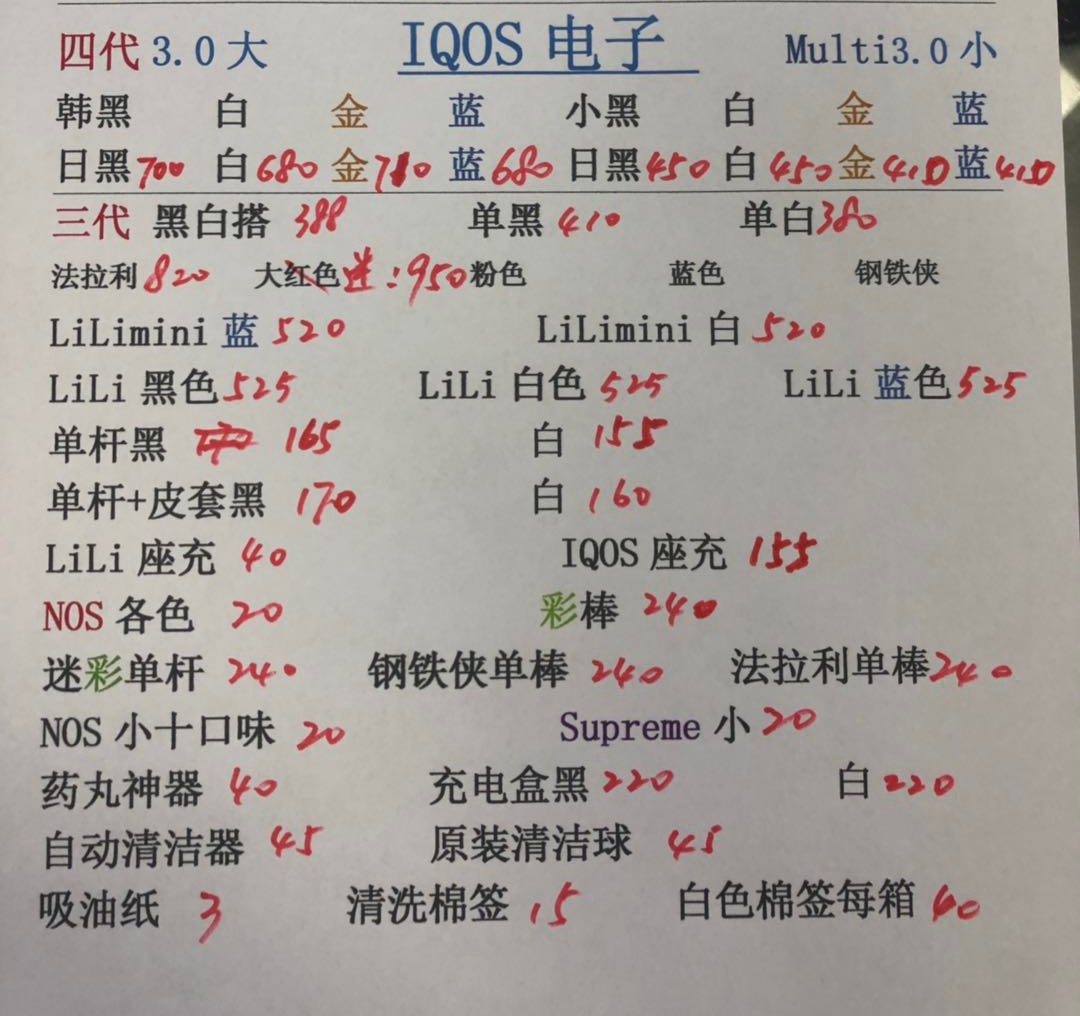 四代 3.0 大 IQOS 电子 Multi3.0 小
韩黑 白 金 蓝 小黑 白 金 蓝
日黑 700 白 680 金 710 蓝 680 日黑 450 白 450 金 410 蓝 410
三代 黑白搭 388 单黑 410 单白 380
法拉利 820 大红色 : 950 粉色 蓝色 钢铁侠
LiLimini 蓝 520 LiLimini 白 520
LiLi 黑色 525 LiLi 白色 525 LiLi 蓝色 525
单杆黑 165 白 155
单杆+皮套黑 170 白 160
LiLi 座充 40 IQOS 座充 155
NOS 各色 20 彩棒 240
迷彩单杆 240 钢铁侠单棒 240 法拉利单棒 240
NOS 小十口味 20 Supreme 小 20
药丸神器 40 充电盒黑 220 白 220
自动清洁器 45 原装清洁球 45
吸油纸 3 清洗棉签 15 白色棉签每箱 60